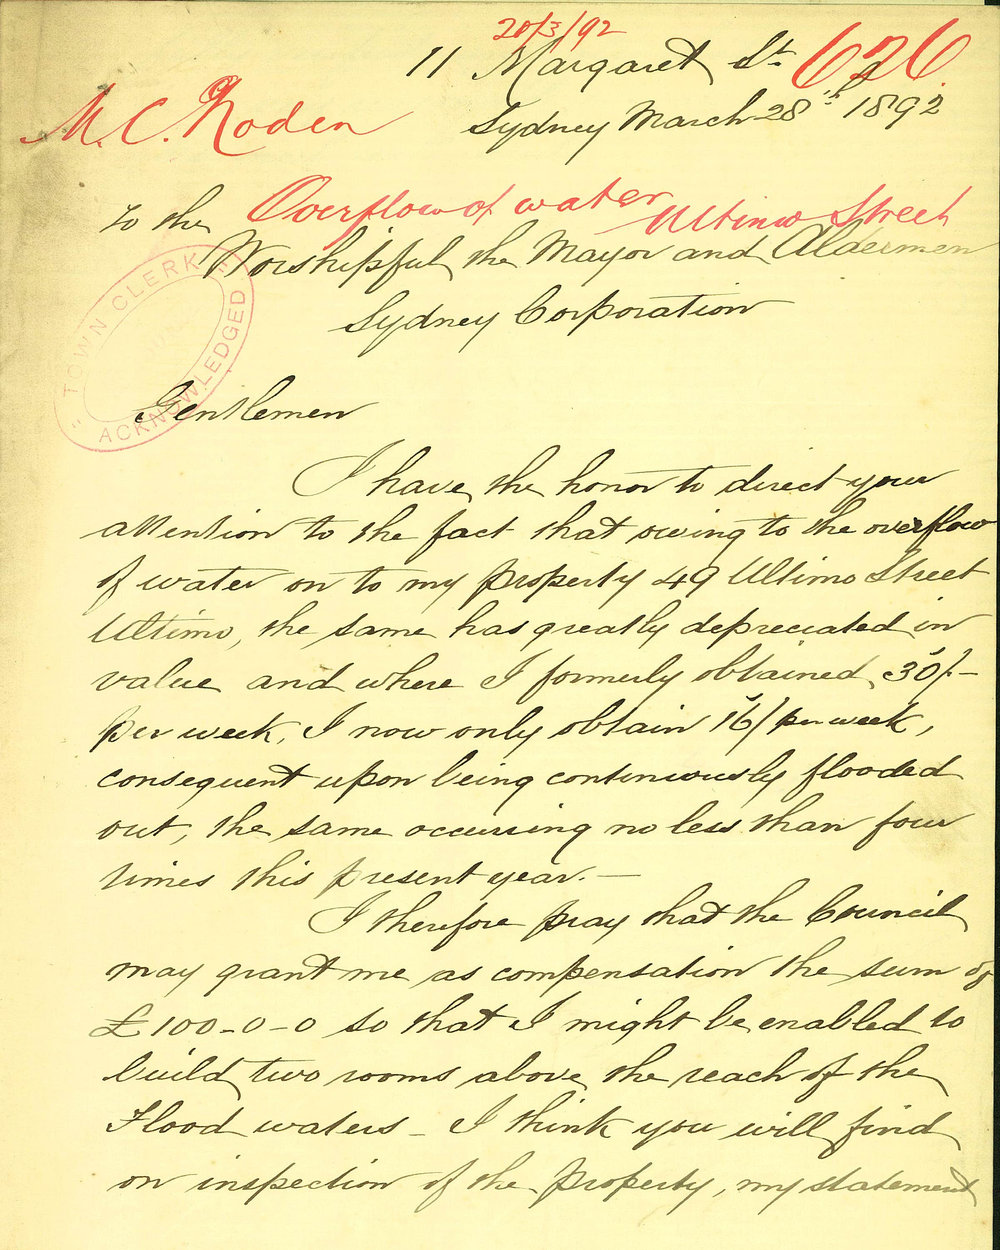 20/3/92
11 Margaret St 626
M. C. Roden
Sydney March 28th 1892
Overflow of water Ultimo Street
To the
Worshipful the Mayor and Aldermen
Sydney Corporation
"TOWN CLERK"
ACKNOWLEDGED
Gentlemen
I have the honor to direct your
attention to the fact that owing to the overflow
of water on to my property 49 Ultimo Street
Ultimo, the same has greatly depreciated in
value and where I formerly obtained
per week, I now only obtain per week,
consequent upon being continuously flooded
out, the same occurring no less than four
times this present year. —
I therefore pray that the Council
may grant me as compensation the sum of
£100-0-0 so that I might be enabled to
build two rooms above the reach of the
Flood waters - I think you will find
on inspection of the property, my statement